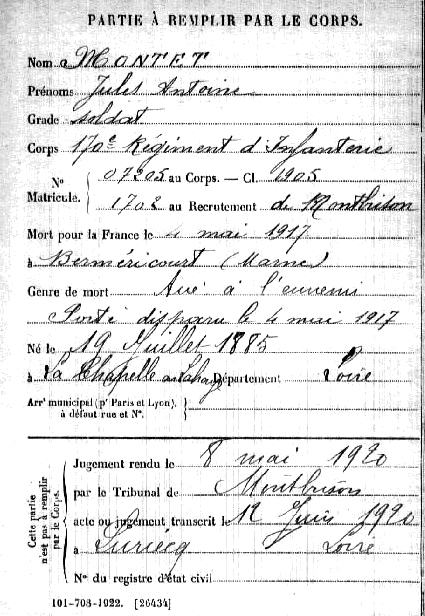 PARTIE À REMPLIR PAR LE CORPS.
Nom MONTET
Prénoms Jules Antoine
Grade soldat
Corps 170e Régiment d'Infanterie
No Matricule. 07205 au Corps. — Cl. 1905
1702 au Recrutement de Montbrison
Mort pour la France le 4 mai 1917
à Berméricourt (Marne)
Genre de mort Tué à l'ennemi
Porté disparu le 4 mai 1917
Né le 19 Juillet 1885
à La Chapelle en Lafaye Département Loire
Arrt municipal (pr Paris et Lyon), à défaut rue et No.
Cette partie n'est pas à remplir par le Corps.
Jugement rendu le 8 mai 1920
par le Tribunal de Montbrison
acte ou jugement transcrit le 12 Juin 1920
à Luriecq Loire
No du registre d'état civil
101-708-1922. [26434]